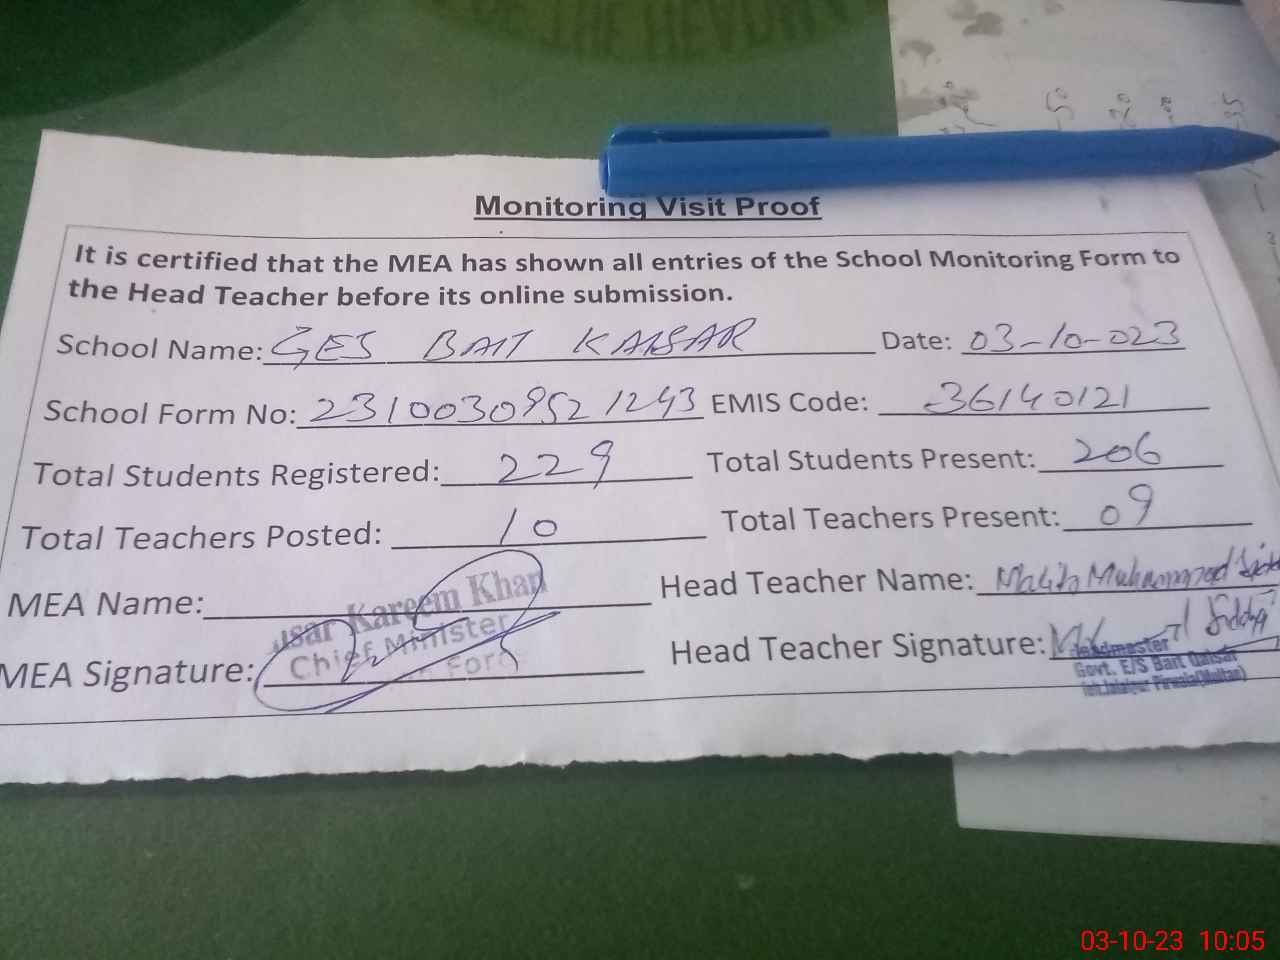 Monitoring Visit Proof
It is certified that the MEA has shown all entries of the School Monitoring Form to
the Head Teacher before its online submission.
School Name: GES BAIT KAISAR Date: 03-10-023
School Form No: 2310030952 1243 EMIS Code: 36140121
Total Students Registered: 229 Total Students Present: 206
Total Teachers Posted: 10 Total Teachers Present: 09
MEA Name: Kareem Khan Head Teacher Name: Muhammad
Chief Minister
MEA Signature: Head Teacher Signature:
Headmaster
Govt. E/S Bait Qaisar
03-10-23 10:05